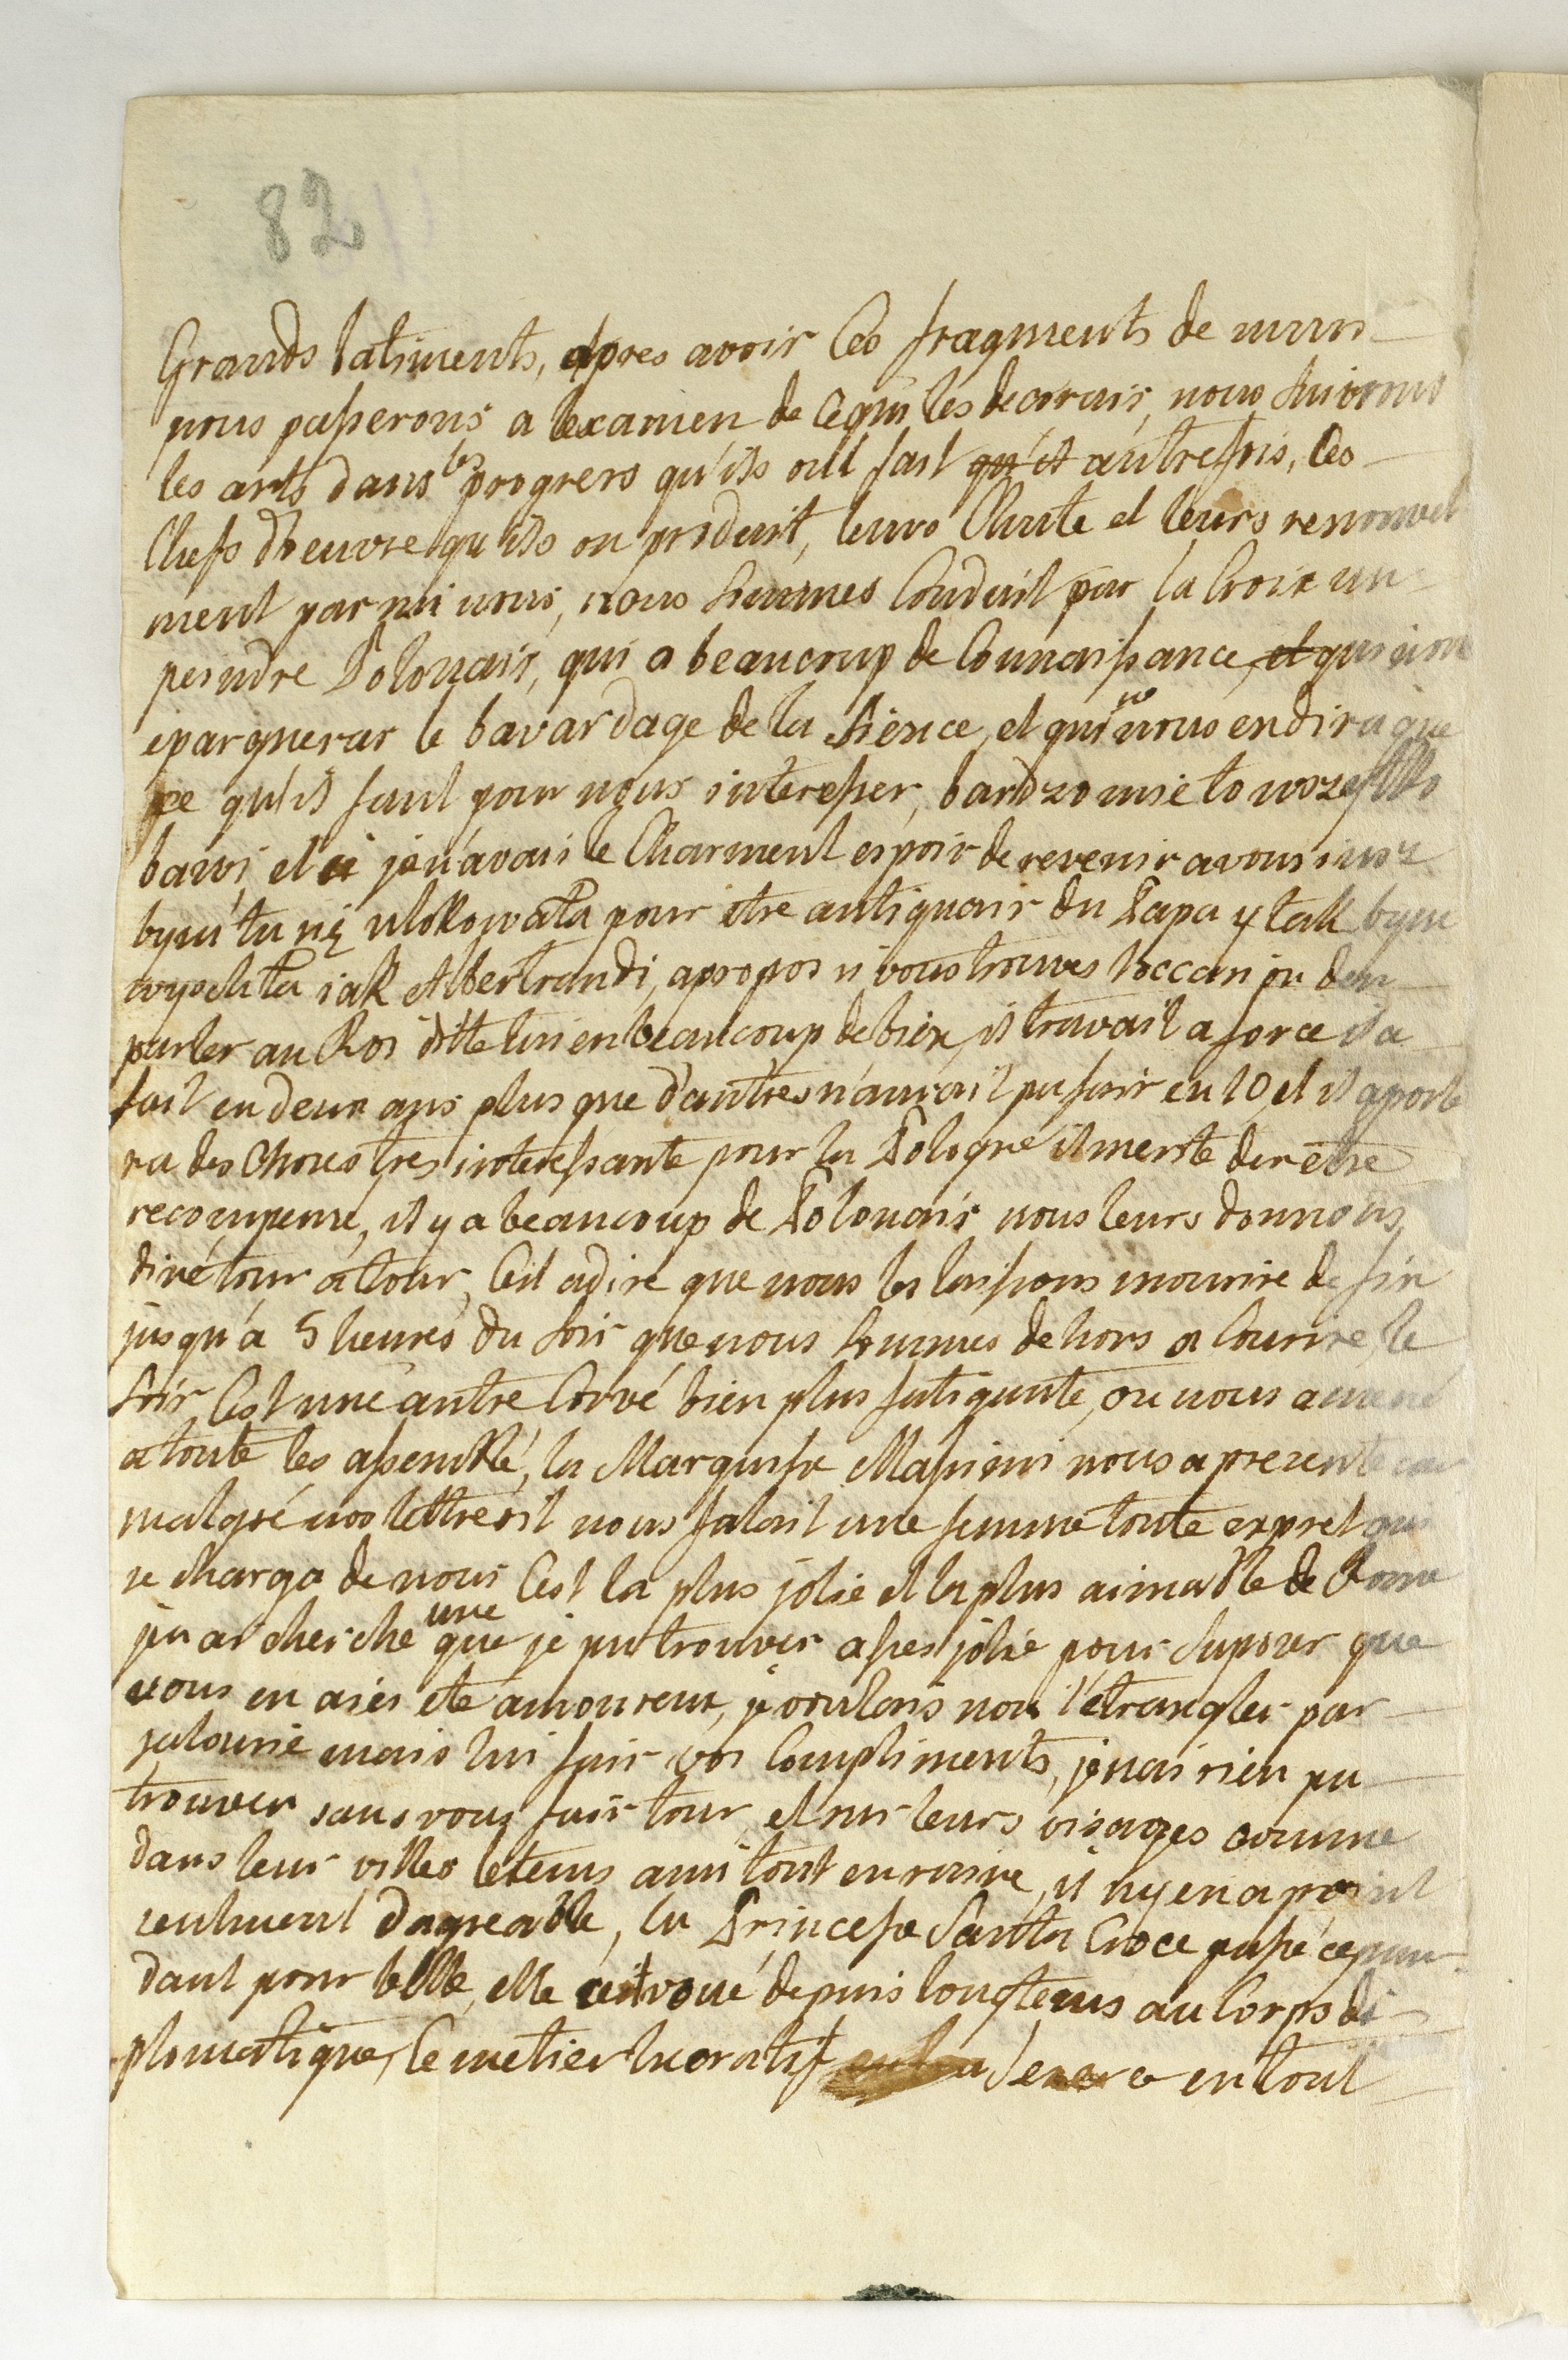 82
Grands batiments, apres avoir Ces fragments de murs
nous passerons a l'examen de Cequi les decorais, nous suivrons
les arts dans les progrers qu'ils ont fait qu'il autrefois, les
Chefs d'oeuvre qu'ils on produit, leurs Chute et leurs renouvel
ment parmi nous, nous sommes Conduit par la Croix un
peindre Polonais, qui a beaucoup de Connaissance, et qui nous
epargnerar le bavardage de la sience, et qui ne nous endira que
ce qu'il faut pour nous interesser, bardzo mie to wszystko
bawi, et si je n'avais le Charment espoir de revenir a vous iusz
bym tu się ulokowała pour etre antiquair du Papa y tak bym
wyschła iak Albertrandi, apropos si vous trouves l'occasion d'en
parler au Roi ditte lui en beaucoup de bien, il travail a force il a
fait en deux ans plus que d'autres n'aurait pu fair en 10, et il aporte
ra des Choses tres interessante pour la Pologne il merite den etre
recompense, il y a beaucoup de Polonais nous leurs donnons
diné tour a tour, C'est adire que nous les laissons mourire de fin
jusqu'a 5 heures du soir que nous sommes dehors a Courire, le
soir C'est une autre Corvé bien plus fatigante, on nous a mené
a toute les assemblé, la Marquise Massimi nous a presenté car
malgré nos lettres il nous falait une femme toute expret qui
se charga de nous C'est la plus jolie et la plus aimable de Rome
j'en ai cherché une que je pu trouver asses jolie pour suposer que
vous en aiés eté amoureux, je voulais non l'étrangler par
jalousie mais lui fair vos Compliments, je nai rien pu
trouver sans vous fair tour, et sur leurs visages comme
dans leur villes le tems a mi tout en ruine, il n'y en a point
seulment d'agreable, la Princesse Santa Croce passé cepen
dant pour belle, elle s'est voué depuis longtems au Corps di
plomatique, le metier lucratif en tout